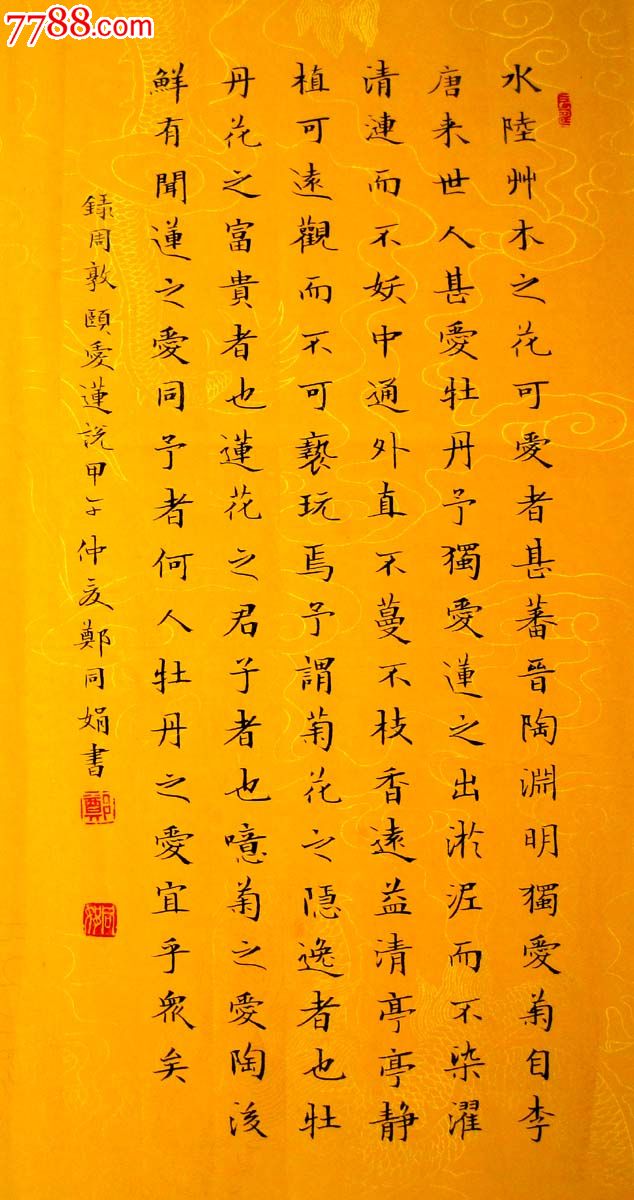 7788.com
水陸艸木之花可愛者甚蕃晉陶淵明獨愛菊自李
唐来世人甚愛牡丹予獨愛蓮之出淤泥而不染濯
清漣而不妖中通外直不蔓不枝香遠益清亭亭静
植可遠觀而不可褻玩焉予謂菊花之隱逸者也牡
丹花之富貴者也蓮花之君子者也噫菊之愛陶後
鮮有聞蓮之愛同予者何人牡丹之愛宜乎衆矣
錄周敦頤愛蓮說甲午仲夏鄭同娟書